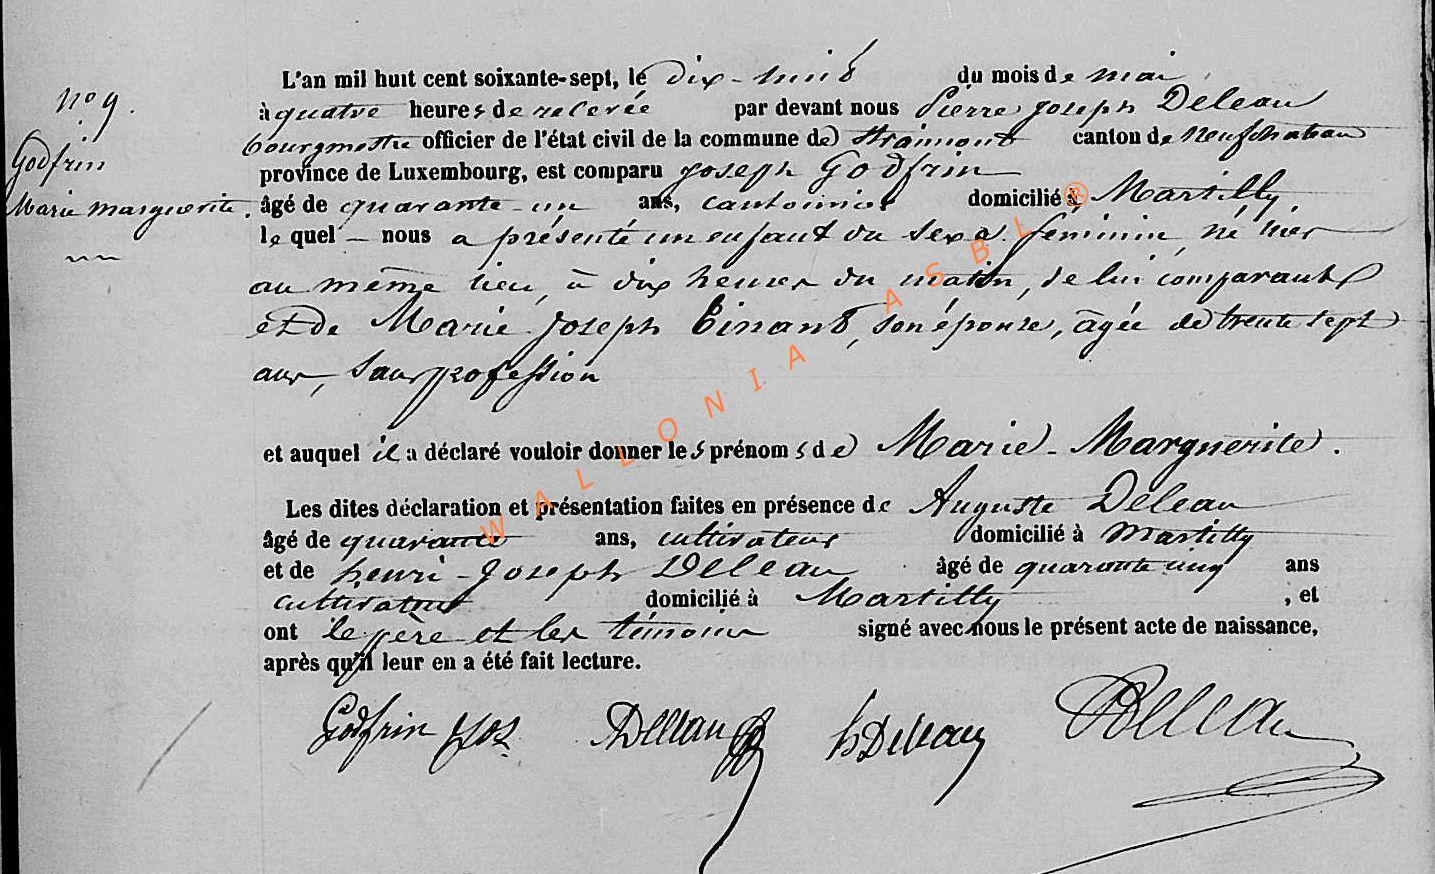 L'an mil huit cent soixante-sept, le dix-huit du mois de mai
N° 9.
à quatre heures de relevée par devant nous Pierre Joseph Deleau
bourgmestre officier de l'état civil de la commune de Straimont canton de Neufchateau
Godfrin
province de Luxembourg, est comparu Joseph Godfrin
Marie Marguerite.
âgé de quarante-un ans, cantonnier domicilié à Martilly
lequel nous a présenté un enfant du sexe féminin, né hier
au même lieu, à dix heures du matin, de lui comparant
et de Marie Joseph Binant, son épouse, âgée de trente sept
ans, sans profession
et auquel il a déclaré vouloir donner les prénoms de Marie-Marguerite.
Les dites déclaration et présentation faites en présence de Auguste Deleau
âgé de quarante ans, cultivateur domicilié à Martilly
et de henri-Joseph Deleau âgé de quarante cinq ans
cultivateur domicilié à Martilly, et
ont le père et les témoins signé avec nous le présent acte de naissance,
après qu'il leur en a été fait lecture.
Godfrin Jos ADeleau hDeleau PDeleau
WALLONIA ASBL ®